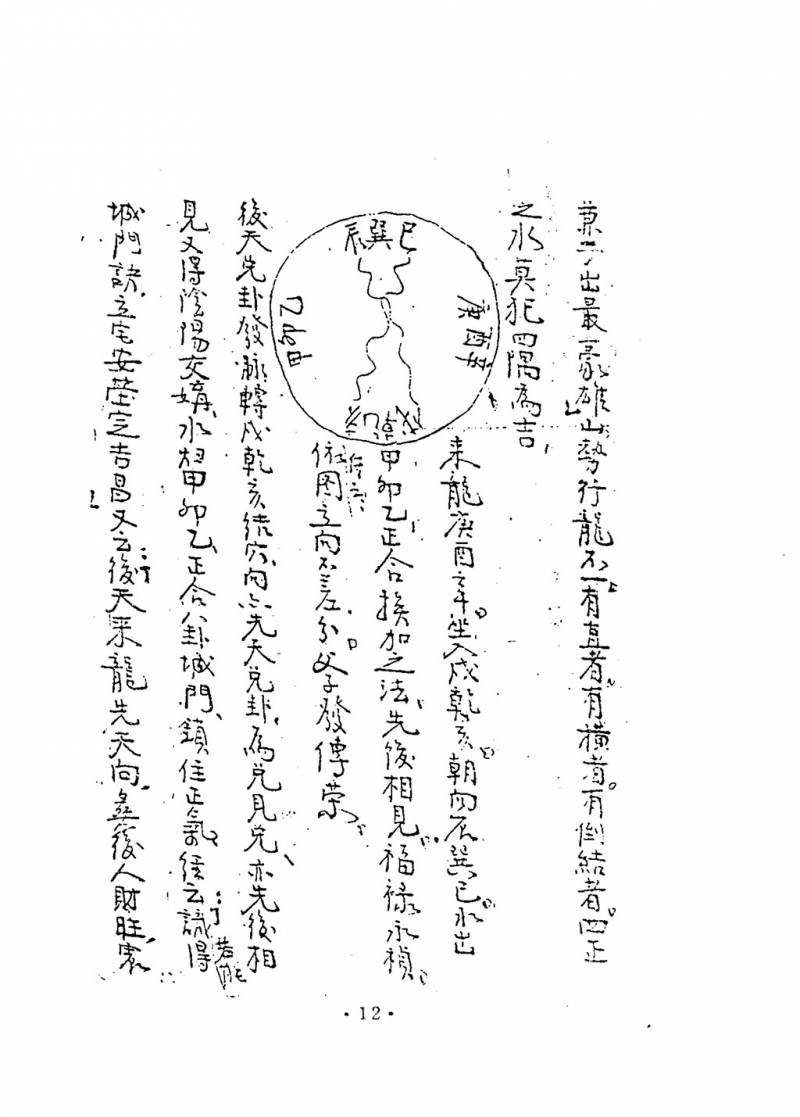 出最豪雄山勢行龍不一有直者有橫者有倒結者四正
之水莫犯四隅為吉
辰巽巳
庚酉辛
甲卯乙
戌乾亥
來龍庚酉辛坐入戌乾亥朝向辰巽巳水出
甲卯乙正合挨加之法先後相見福祿永禎
依圖立向不差分父子發傳榮
後天先卦發脉轉戌乾亥結穴向先天兌卦為兌見兌亦先後相
見又得陰陽交媾水出甲卯乙正合八卦城門鎖住正氣經云識得
若能
城門訣立宅安塋定吉昌又云後天來龍先天向後人財旺
·12·